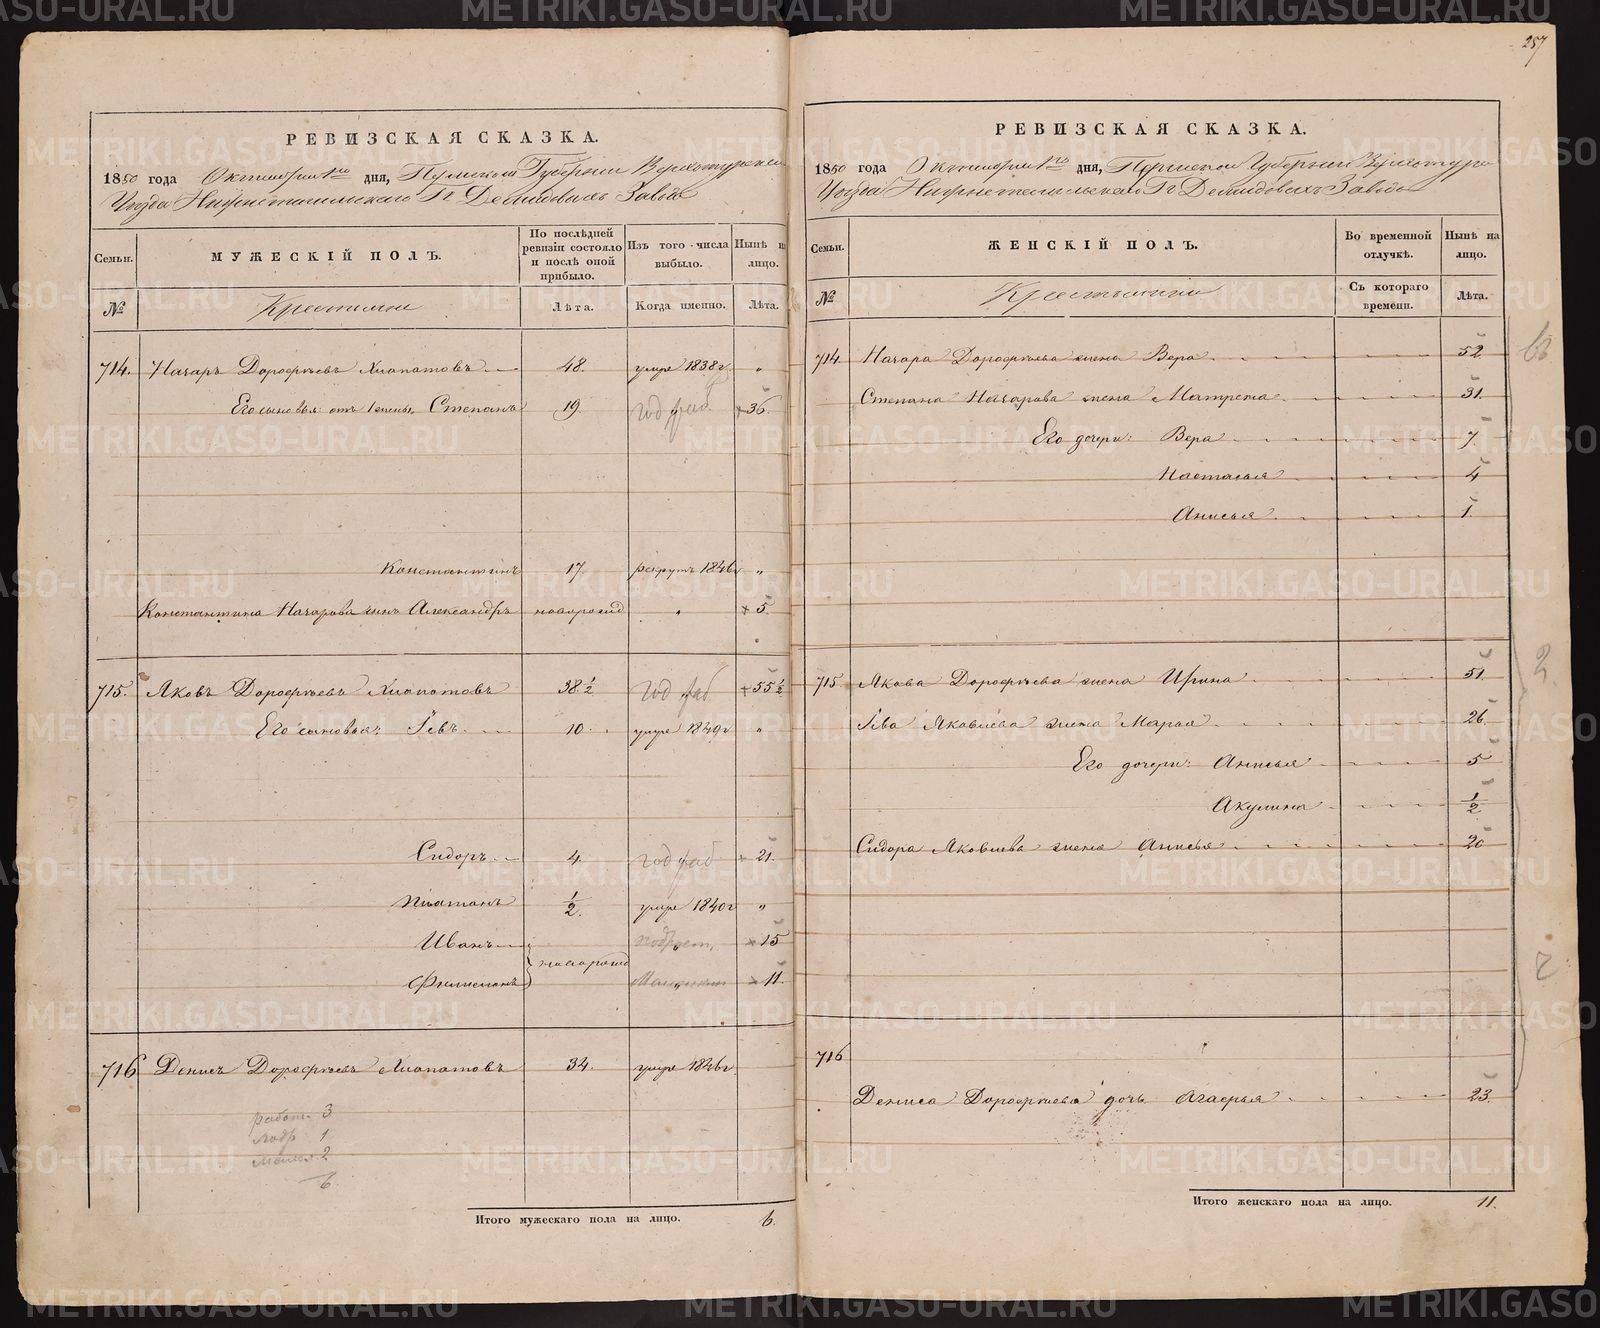 257
РЕВИЗСКАЯ СКАЗКА.
1850 года Октября 1го дня, Пермской Губернии Верхотурска
Уезда Нижнетагильскаго Гг Демидовыхъ Завода
Семьи. МУЖЕСКІЙ ПОЛЪ. По послѣдней ревизіи состояло и послѣ оной прибыло. Изъ того числа выбыло. Нынѣ на лицо.
№ Крестьяне Лѣта. Когда именно. Лѣта.
714. Назаръ Дорофѣевъ Хлопотовъ 48. умре 1838г. „
Его сыновья отъ 1 жены, Степанъ 19. год раб. 36.
Константинъ 17. рекрутъ 1846г „
Константина Назарова сынъ Александръ новорожд „ 5.
715. Яковъ Дорофѣевъ Хлопотовъ 38 1/2 год раб 55 1/2
Его сыновья: Іевъ 10. умре 1849г „
Сидоръ 4. год раб 21.
Платонъ 1/2. умре 1840г „
Иванъ новорожд подрост. 15
Филимонъ 11.
716 Денисъ Дорофѣевъ Хлопотовъ 34. умре 1846г.
работн 3
подр 1
малол. 2
6.
Итого мужескаго пола на лицо. 6.
РЕВИЗСКАЯ СКАЗКА.
1850 года Октября 1го дня, Пермской Губернии Верхотурс
Уезда Нижнетагильскаго Гг Демидовыхъ Завода
Семьи. ЖЕНСКІЙ ПОЛЪ. Во временной отлучкѣ. Нынѣ на лицо.
№ Крестьянки Съ котораго времени. Лѣта.
714 Назара Дорофѣева жена Вера 52
Степана Назарова жена Матрена 31.
Его дочери: Вера 7
Настасья 4
Анисья 1.
715 Якова Дорофѣева жена Ирина 51.
Іева Яковлева жена Марья 26.
Его дочери: Анисья 5
Акулина 1/2
Сидора Яковлева жена Анисья 20
716
Дениса Дорофѣева дочь Агафья 23.
Итого женскаго пола на лицо. 11.
METRIKI.GASO-URAL.RU